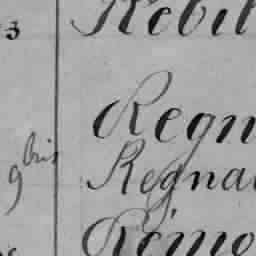 3 Rebil
Regn
9bis Regna
Rémo